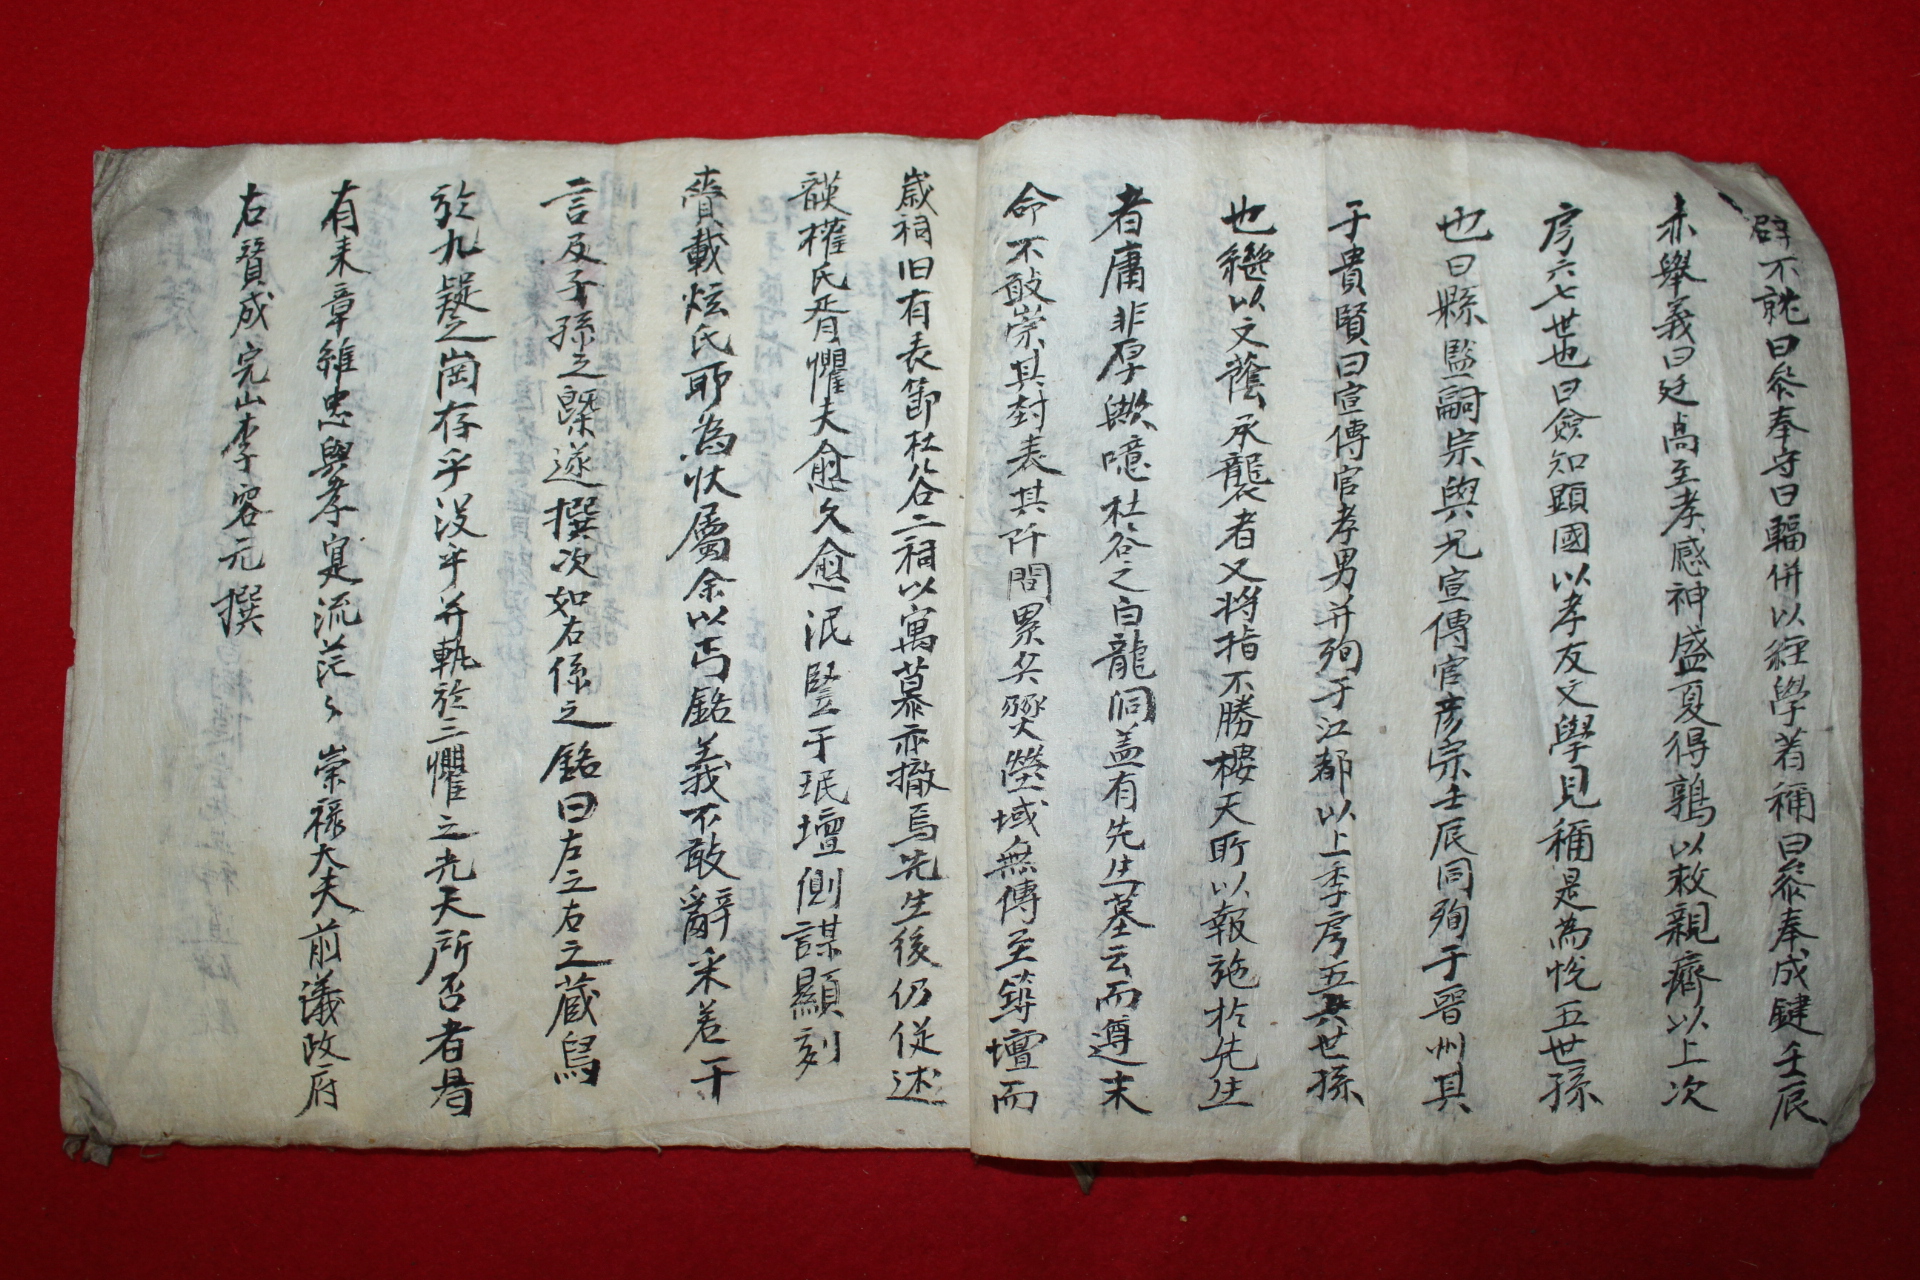 辟不就曰參奉守曰輻併以経學著稱曰參奉成鍵壬辰
赤舉義曰廷高至孝感神盛夏得鶉以救親癠以上次
房六七世也曰僉知顯國以孝友文學見稱是為悅五世孫
也曰縣監嗣宗與兄宣傳官彦宗壬辰同殉于晋州其
于貴賢曰宣傳官孝男并殉于江都以上季房五六世孫
也繼以文蔭承襲者又將指不勝樓天所以報施於先生
者庸非厚歟噫杜谷之白龍洞盖有先生墓云而遵末
命不敢崇其封表其阡間累矣燹塋域無傳至築壇而
歲祠旧有表節杜谷二祠以寓慕亦撤焉先生後仍従述
韺權氏胥懼夫愈久愈泯竪于珉壇側謀顯刻
賚載炫氏耶為状屬余以丐銘義不敢辭采差于
言及子孫之槩遂撰次如右係之銘曰左之右之蔵舄
於九疑之崗存乎没乎并執於三懼之光天所否者曷
有未章維忠與孝寔流茫々崇祿大夫前議政府
右賛成完山李容元撰